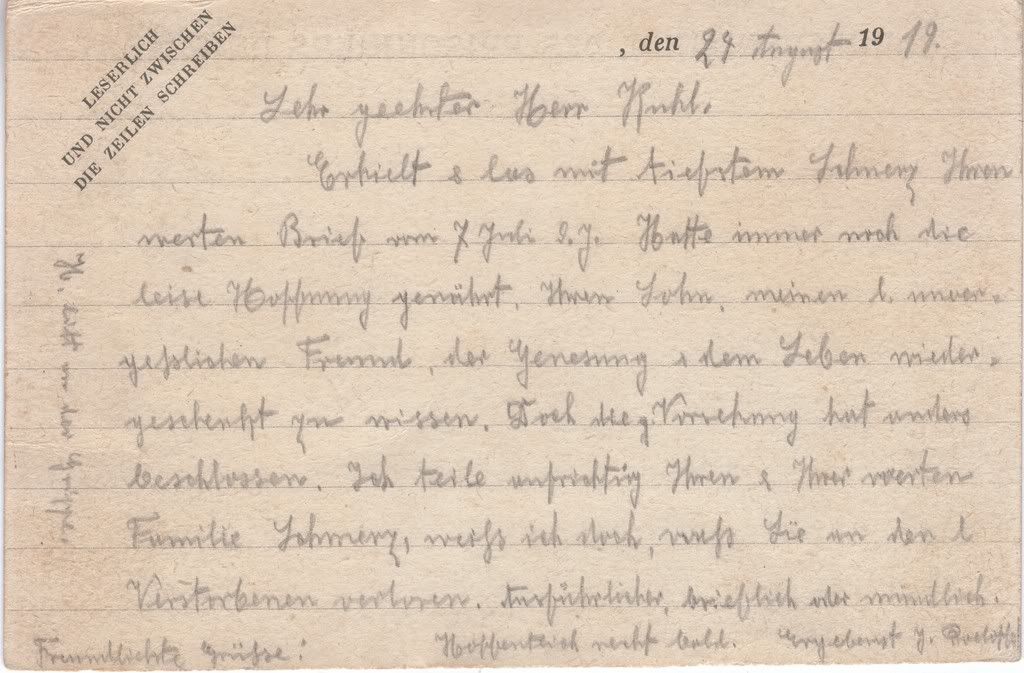 LESERLICH
UND NICHT ZWISCHEN
DIE ZEILEN SCHREIBEN
, den 24 August 19 19.
Sehr geehrter Herr Kuhl.
Erhielt & las mit tiefstem Schmerz Ihren
werten Brief vom 7 Juli d. J. Hatte immer noch die
leise Hoffnung genährt, Ihren Sohn, meinen l. unver-
geßlichen Freund, der Genesung & dem Leben wieder-
geschenkt zu wissen. Doch die g. Vorsehung hat anders
beschlossen. Ich teile aufrichtig Ihren & Ihrer werten
Familie Schmerz, weiß ich doch, was Sie an den l
Verstorbenen verloren. Ausführlicher, brieflich oder mündlich.
Hoffentlich recht bald. Ergebenst J.
Freundlichste Grüsse!
litt an der Grippe